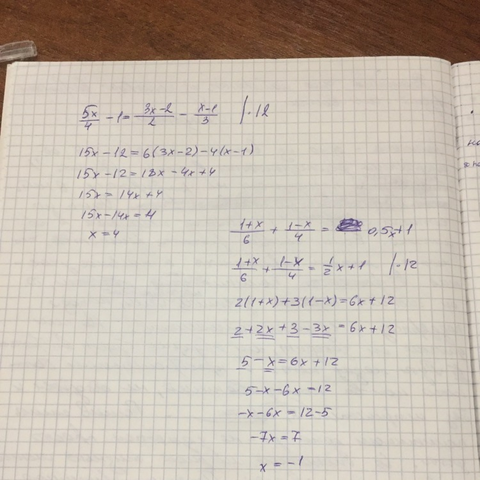 5x/4 - 1 = 3x-2/2 - x-1/3 /·12
15x - 12 = 6(3x-2) - 4(x-1)
15x - 12 = 18x - 4x + 4
15x = 14x + 4
15x - 14x = 4
x = 4
1+x/6 + 1-x/4 = 0,5x+1
1+x/6 + 1-x/4 = 1/2x + 1 /·12
2(1+x) + 3(1-x) = 6x + 12
2 + 2x + 3 - 3x = 6x + 12
5 - x = 6x + 12
5 - x - 6x = 12
-x - 6x = 12 - 5
-7x = 7
x = -1